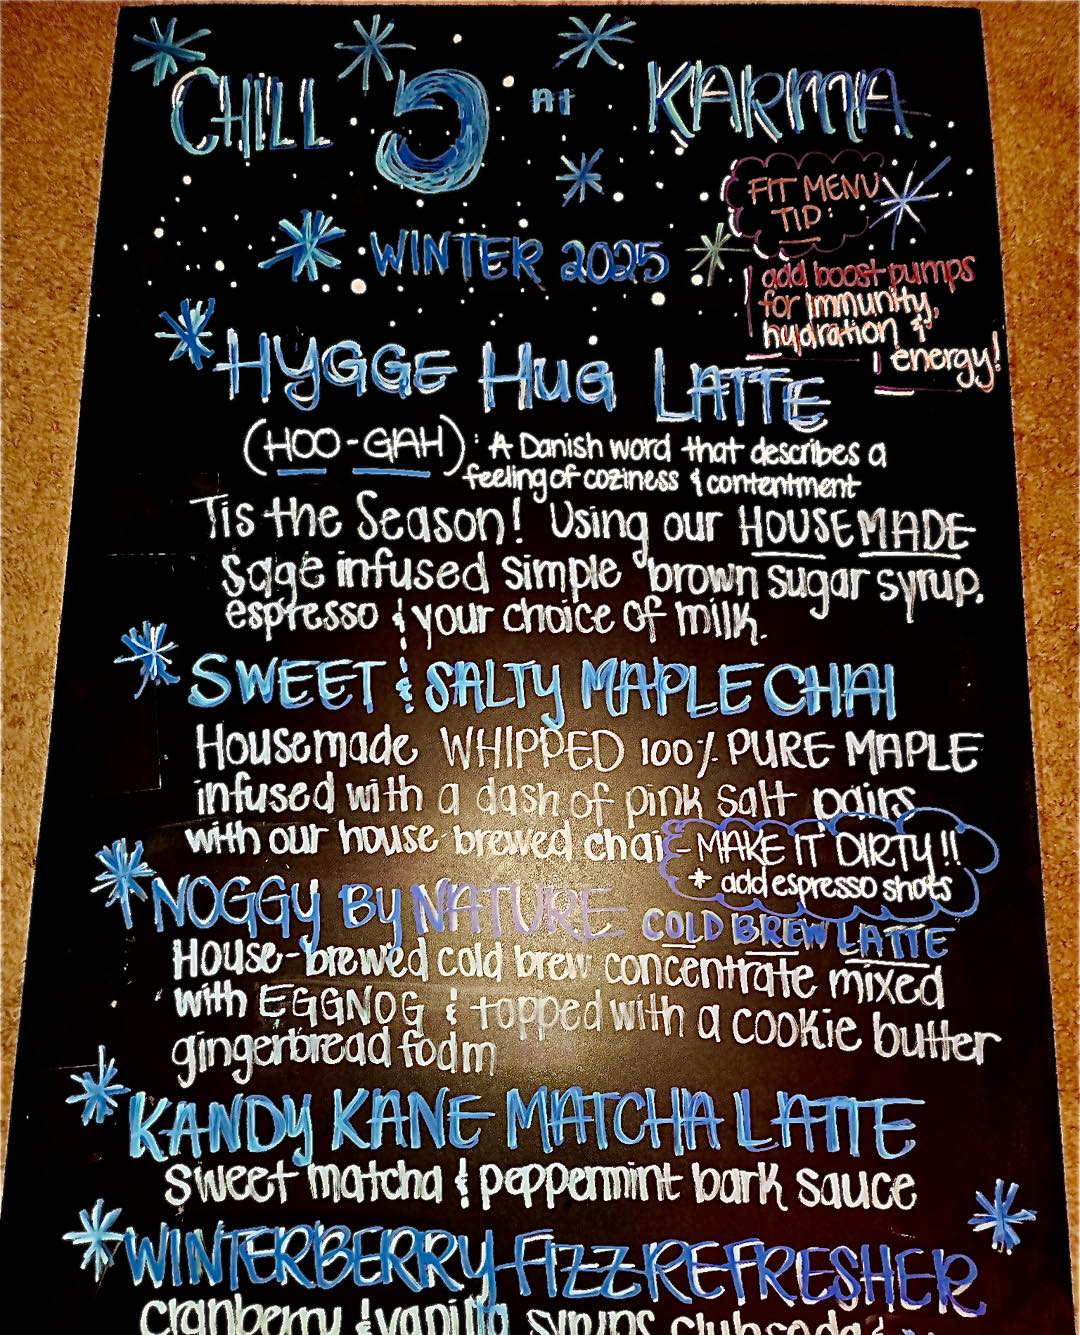 CHILL 5 AT KARMA
FIT MENU
TIP:
WINTER 2025
add boost pumps
for immunity,
hydration &
energy!
HYGGE HUG LATTE
(HOO-GAH): A Danish word that describes a
feeling of coziness & contentment
Tis the Season! Using our HOUSEMADE
sage infused simple brown sugar syrup,
espresso & your choice of milk.
SWEET & SALTY MAPLE CHAI
Housemade WHIPPED 100% PURE MAPLE
infused with a dash of pink salt pairs
with our house-brewed chai - MAKE IT DIRTY!!
+ add espresso shots
NOGGY BY NATURE COLD BREW LATTE
House-brewed cold brew concentrate mixed
with EGGNOG & topped with a cookie butter
gingerbread foam
KANDY KANE MATCHA LATTE
sweet matcha & peppermint bark sauce
WINTERBERRY FIZZ REFRESHER
cranberry & vanilla syrups club soda &